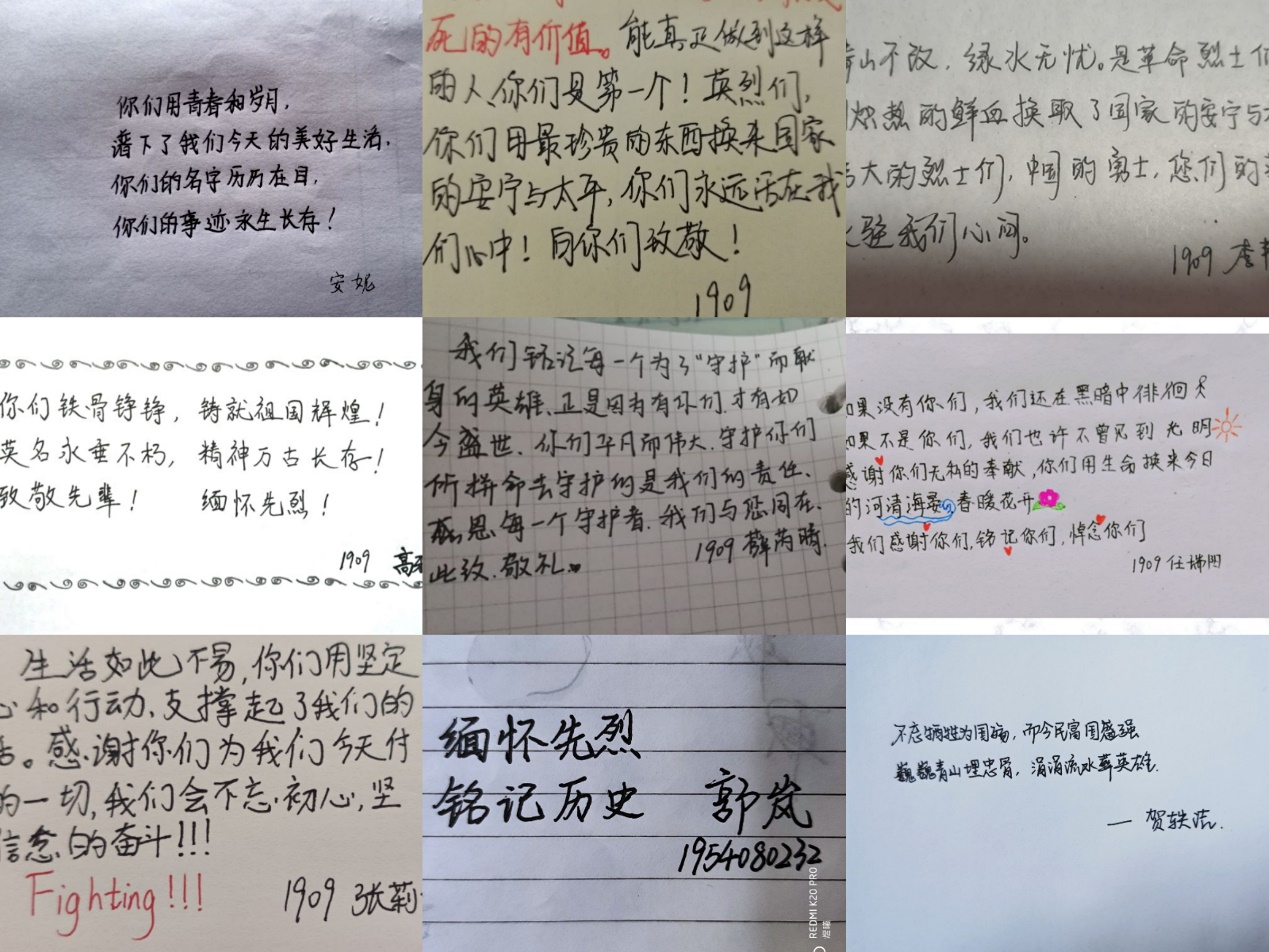 你们用青春和岁月，
谱下了我们今天的美好生活，
你们的名字历历在目，
你们的事迹永生长存！
安妮
死的有价值。能真正做到这样
的人，你们是第一个！英烈们，
你们用最珍贵的东西换来国家
的安宁与太平，你们永远活在我
们心中！向你们致敬！
1909
山不改，绿水无忧。是革命烈士们
炽热的鲜血换取了国家的安宁与
大的烈士们，中国的勇士，您们的
驻我们心间。
1909 李
你们铁骨铮铮，铸就祖国辉煌！
英名永垂不朽，精神万古长存！
致敬先辈！ 缅怀先烈！
1909 高
我们铭记每一个为了“守护”而献
身的英雄、正是因为有你们，才有如
今盛世，你们平凡而伟大，守护你们
所拼命去守护的是我们的责任、
感恩每一个守护者，我们与您同在、
1909 薛芮晴
此致、敬礼。
如果没有你们，我们还在黑暗中徘徊
如果不是你们，我们也许不曾见到光明
感谢你们无私的奉献，你们用生命换来今日
的河清海晏，春暖花开
我们感谢你们，铭记你们，悼念你们
1909 任
生活如此不易，你们用坚定
心和行动，支撑起了我们的
活。感谢你们为我们今天付
的一切，我们会不忘初心，坚
信念的奋斗！！！
Fighting!!!
1909 张莉
缅怀先烈
铭记历史 郭岚
1954080232
REDMI K20 PRO
不忘牺牲为国殇，而今民富国盛强
巍巍青山埋忠骨，涓涓流水葬英雄.
— 贺轶